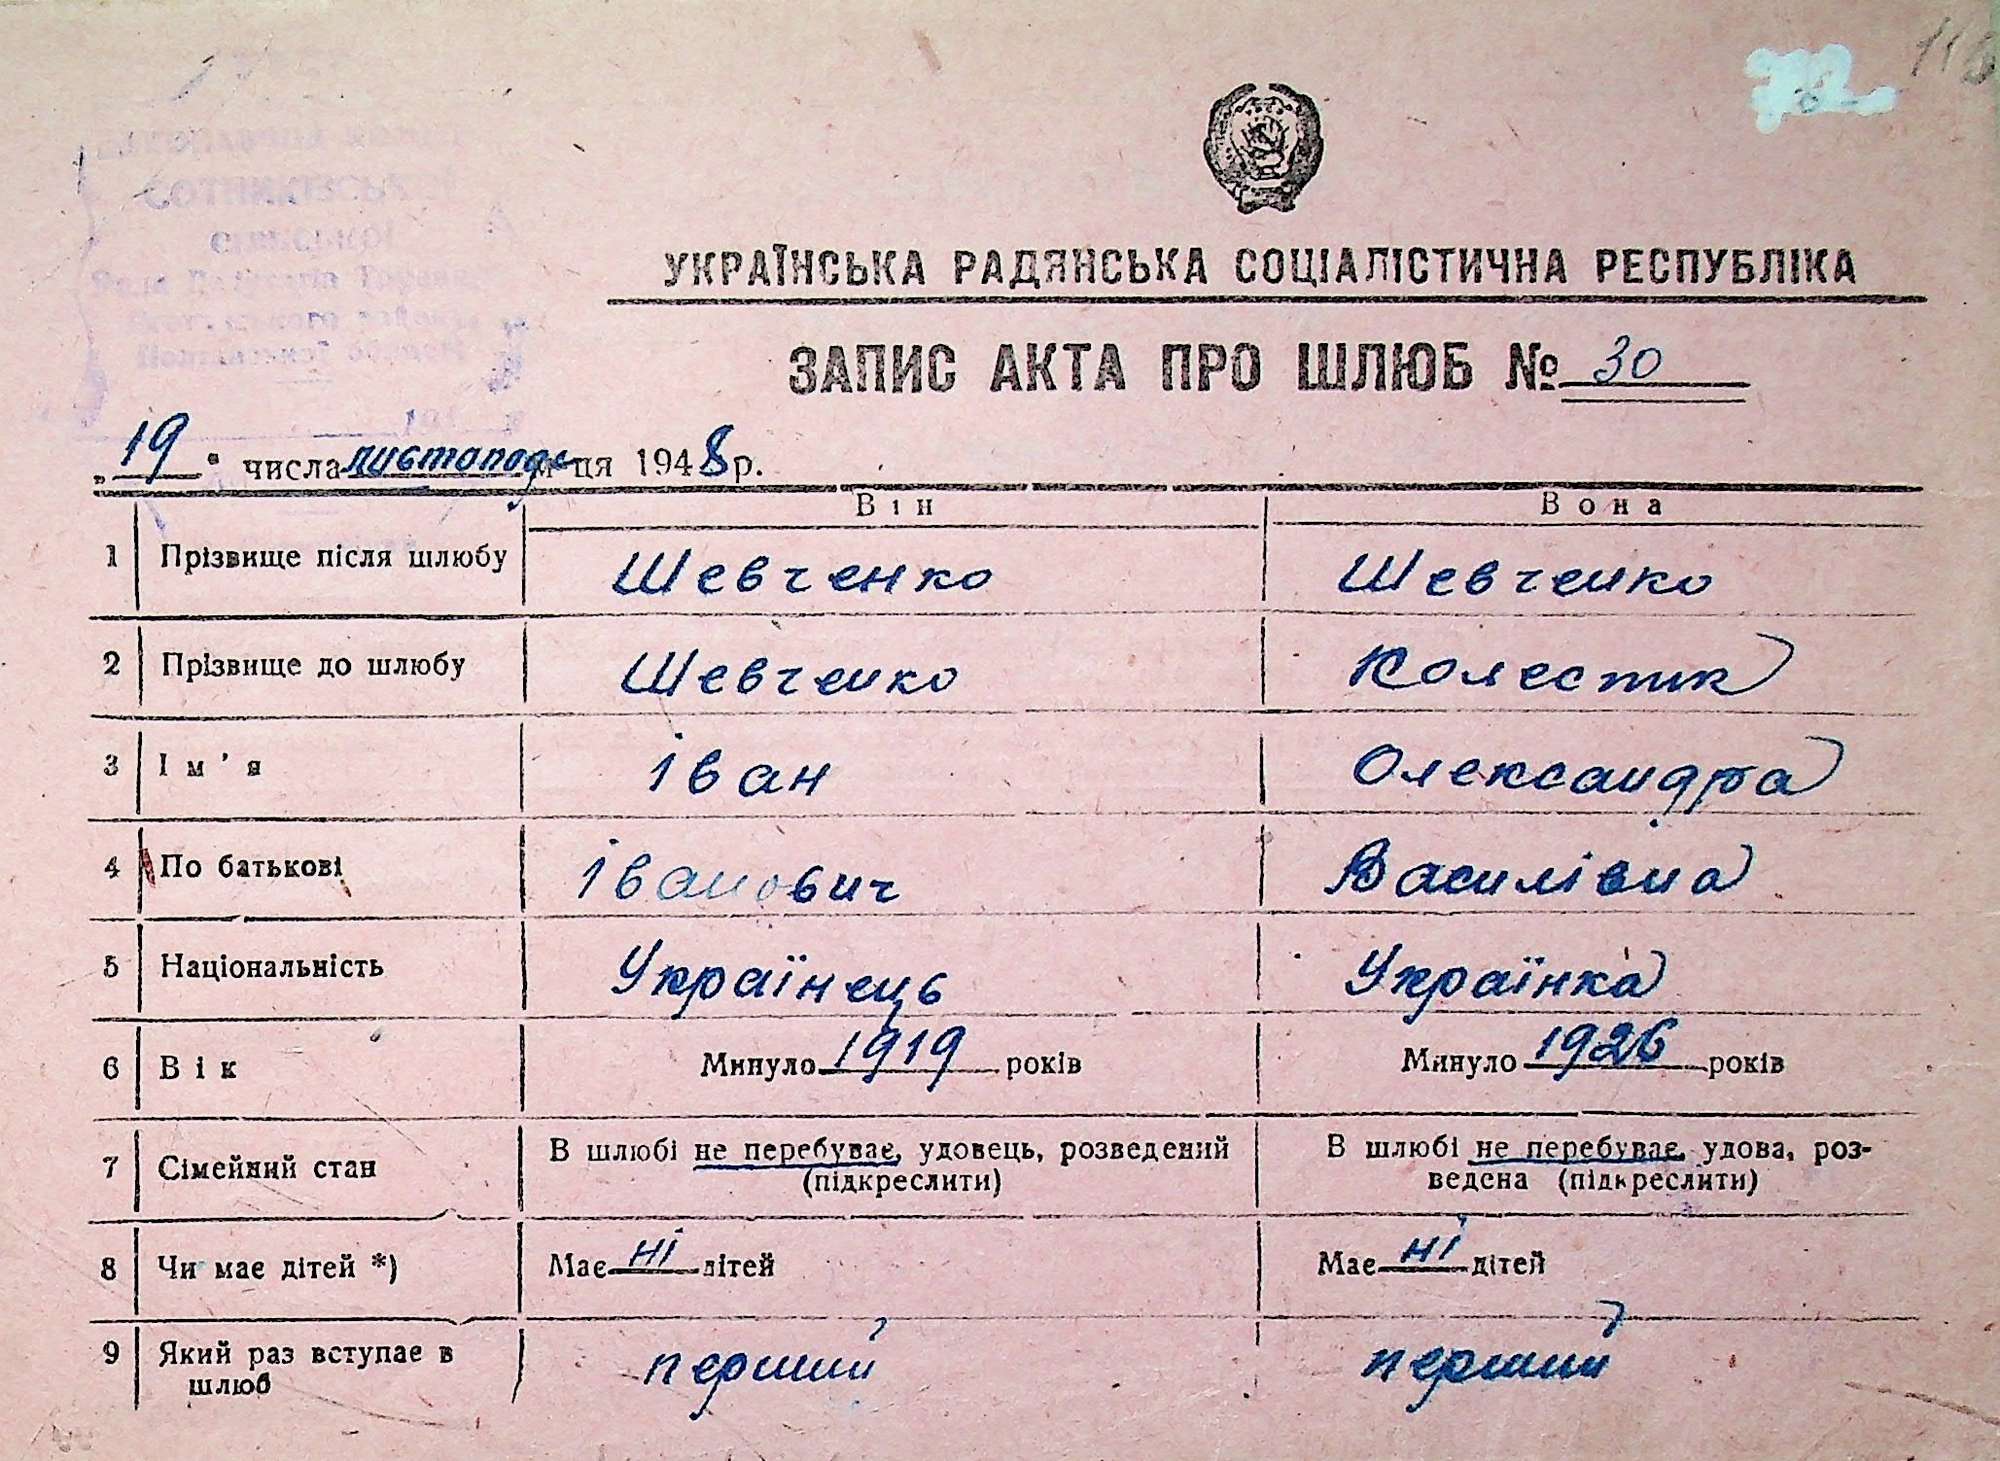 72
СОТНИКІВСЬК
СІЛЬСЬКОЇ
Ради Депутатів Трудящ
району
Полтавської області
УКРАЇНСЬКА РАДЯНСЬКА СОЦІАЛІСТИЧНА РЕСПУБЛІКА
ЗАПИС АКТА ПРО ШЛЮБ № 30
„19“ числа листопада м-ця 1948 р.
Він Вона
1 Прізвище після шлюбу Шевченко Шевченко
2 Прізвище до шлюбу Шевченко Колестик
3 Ім'я Іван Олександра
4 По батькові Іванович Василівна
5 Національність Українець Українка
6 Вік Минуло 1919 років Минуло 1926 років
7 Сімейний стан В шлюбі не перебуває, удовець, розведений В шлюбі не перебуває, удова, роз-
(підкреслити) ведена (підкреслити)
8 Чи має дітей *) Має ні дітей Має ні дітей
9 Який раз вступає в перший перший
шлюб